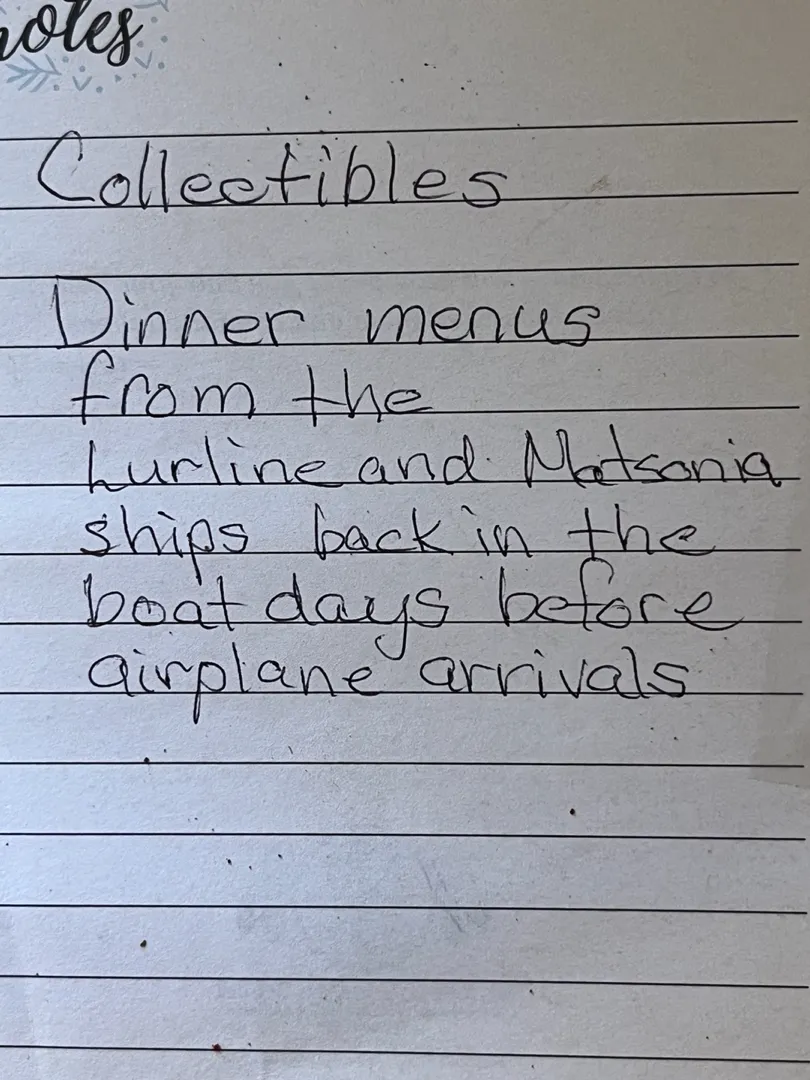 notes
Collectibles
Dinner menus
from the
Lurline and Matsonia
ships back in the
boat days before
airplane arrivals